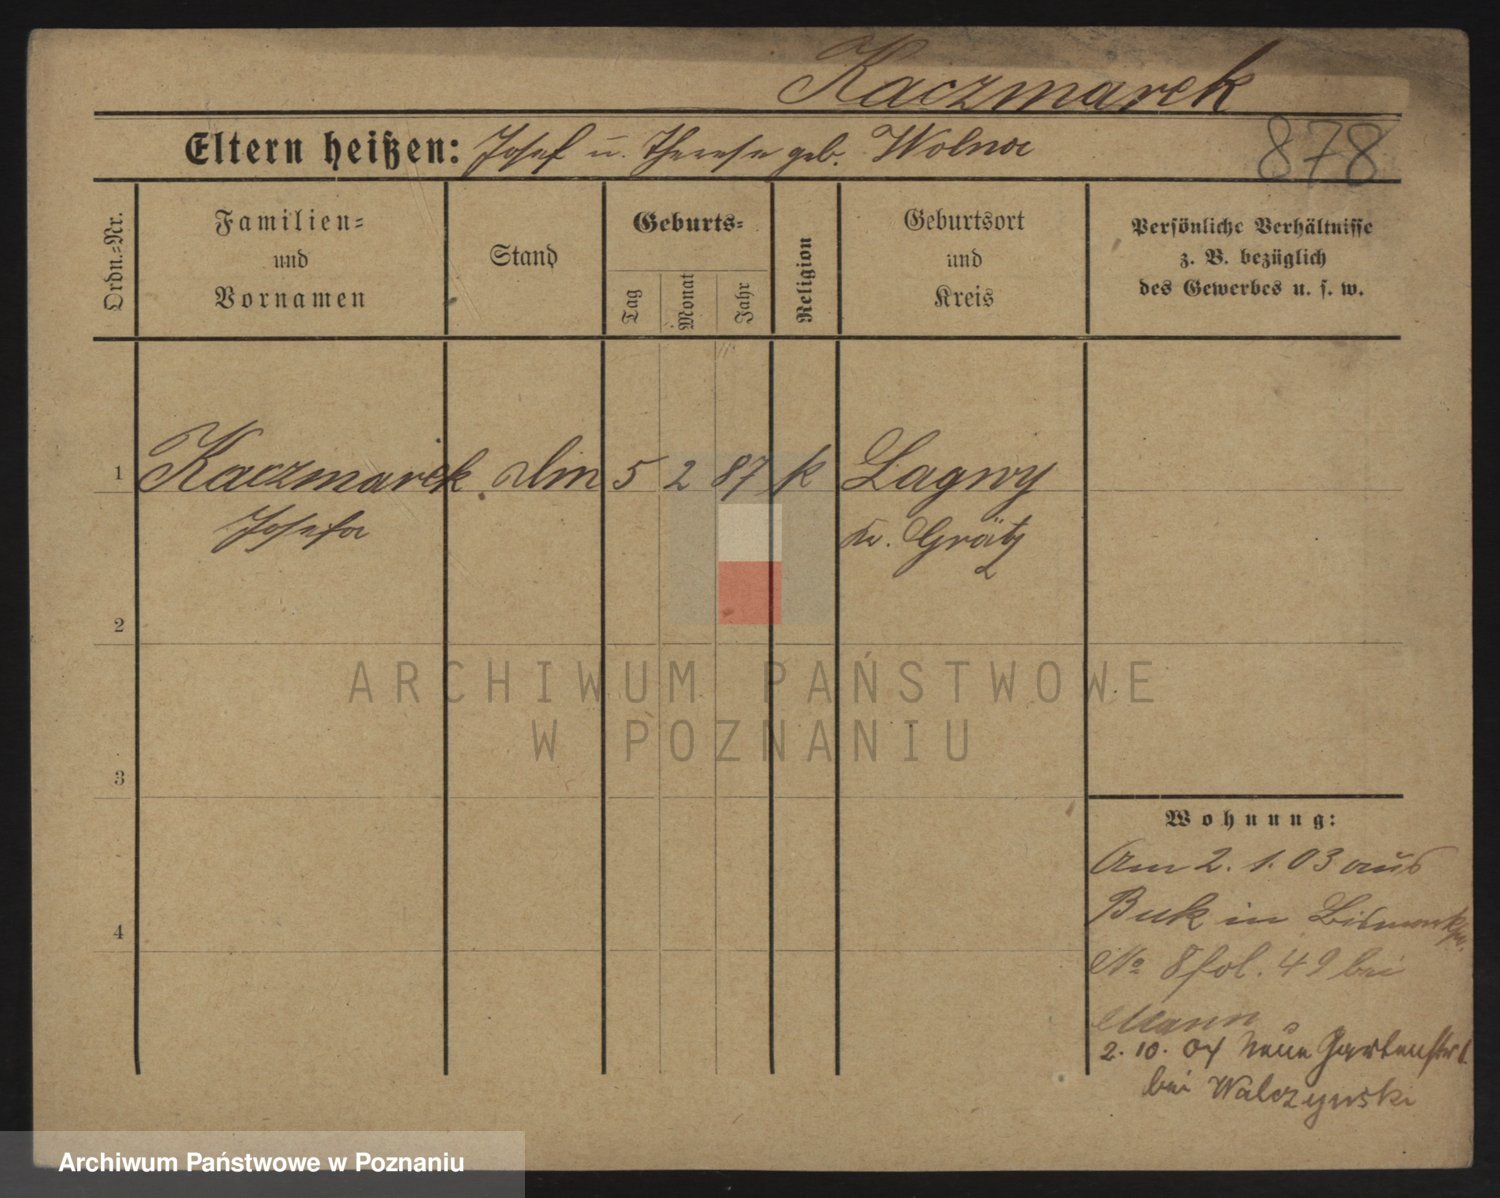 Kaczmarek
Eltern heißen: Josef u. Therese geb. Wolna
878
Ordn.-Nr.
Familien-
und
Vornamen
Stand
Geburts-
Tag
Monat
Jahr
Religion
Geburtsort
und
Kreis
Persönliche Verhältnisse
z. B. bezüglich
des Gewerbes u. s. w.
1 Kaczmarek 5 2 87 k Lagwy
Josefa Kr. Grätz
2
ARCHIWUM PAŃSTWOWE
W POZNANIU
3
Wohnung:
Am 2. 1. 03 aus
Buk in
4
No 8 fol. 49 bei
Mann
2. 10. 04 Neue Gartenstr
bei Walczynski
Archiwum Państwowe w Poznaniu